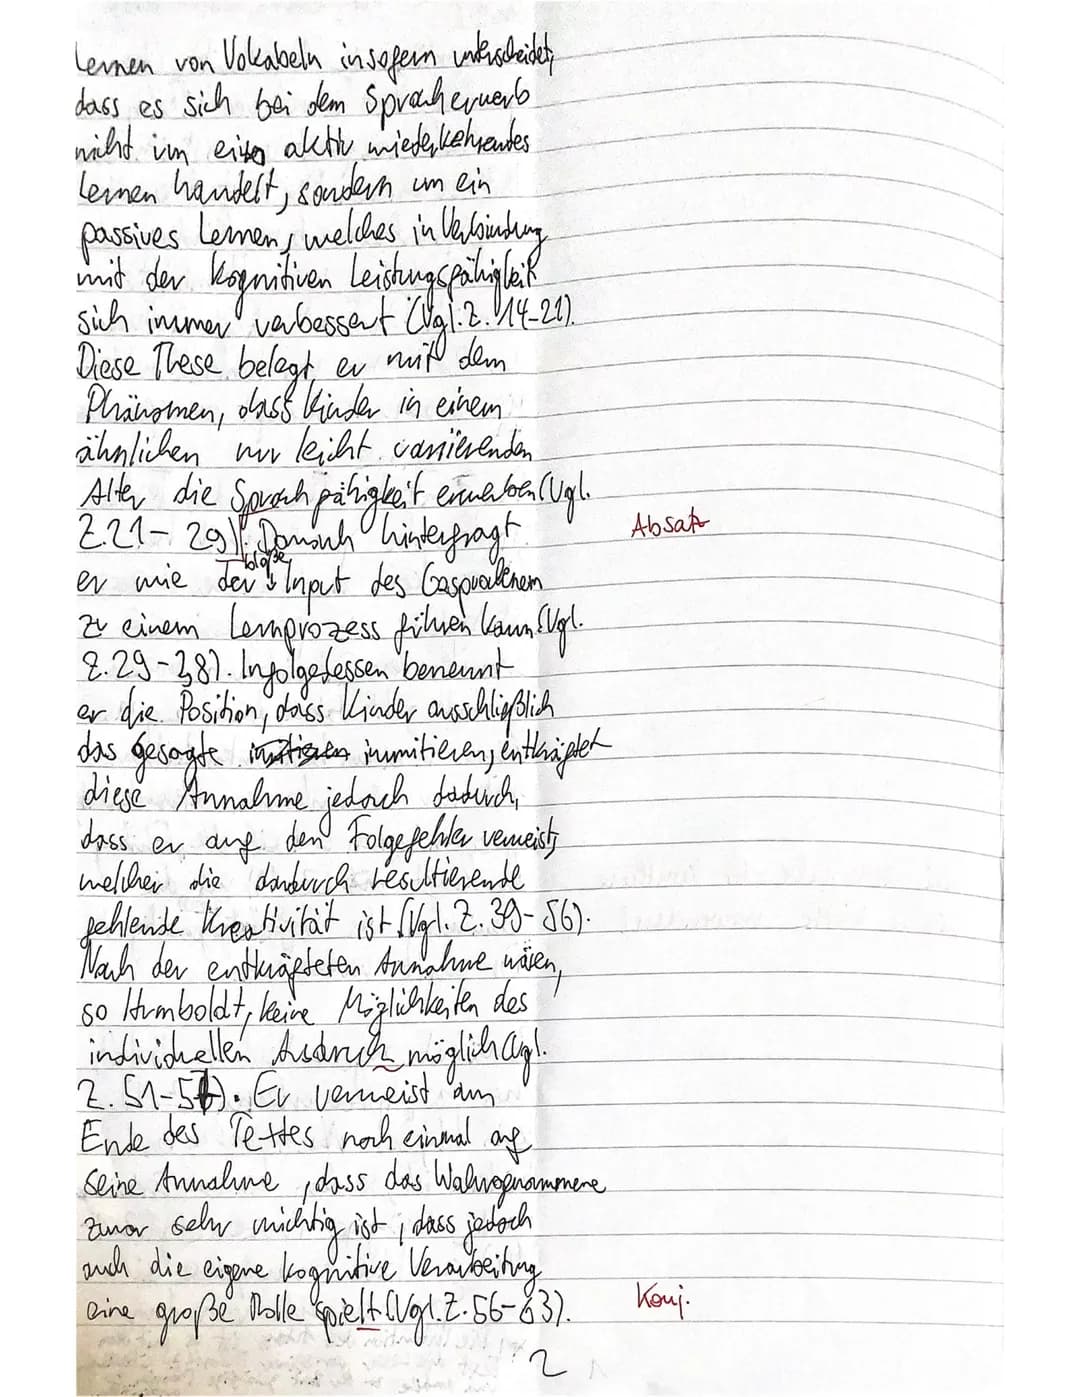 lernen von Vokabeln insofern unterscheidet,
dass es sich bei dem Spracherwerb
nicht um ein aktiv wiederkehrendes
lernen handelt, sondern um ein
passives Lernen, welches in Verbindung
mit der kognitiven Leistungsfähigkeit
sich immer verbessert (Vgl. Z. 14-21).
Diese These belegt er mit dem
Phänomen, dass Kinder in einem
ähnlichen nur leicht variierenden
Alter die Sprachfähigkeit erwerben (Vgl.
Z. 21-29). Danach hinterfragt
Absatz
er wie der bloße Input des
zu einem Lernprozess führen kann (Vgl.
Z. 29-38). Infolgedessen benennt
er die Position, dass Kinder ausschließlich
das gesagte immitieren, entkräftet
diese Annahme jedoch dadurch,
dass er auf den Folgefehler verweist,
welcher die dardurch resultierende
fehlende Kreativität ist (Vgl. Z. 39-56).
Nach der entkräfteten Annahme wären,
so Humboldt, keine Möglichkeiten des
individuellen Ausdruck möglich (Vgl.
Z. 51-56). Er verweist am
Ende des Textes noch einmal auf
seine Annahme, dass das Wahrgenommene
zwar sehr wichtig ist, dass jedoch
auch die eigene kognitive Verarbeitung
eine große Rolle spielt (Vgl. Z. 56-63).
Konj.
2